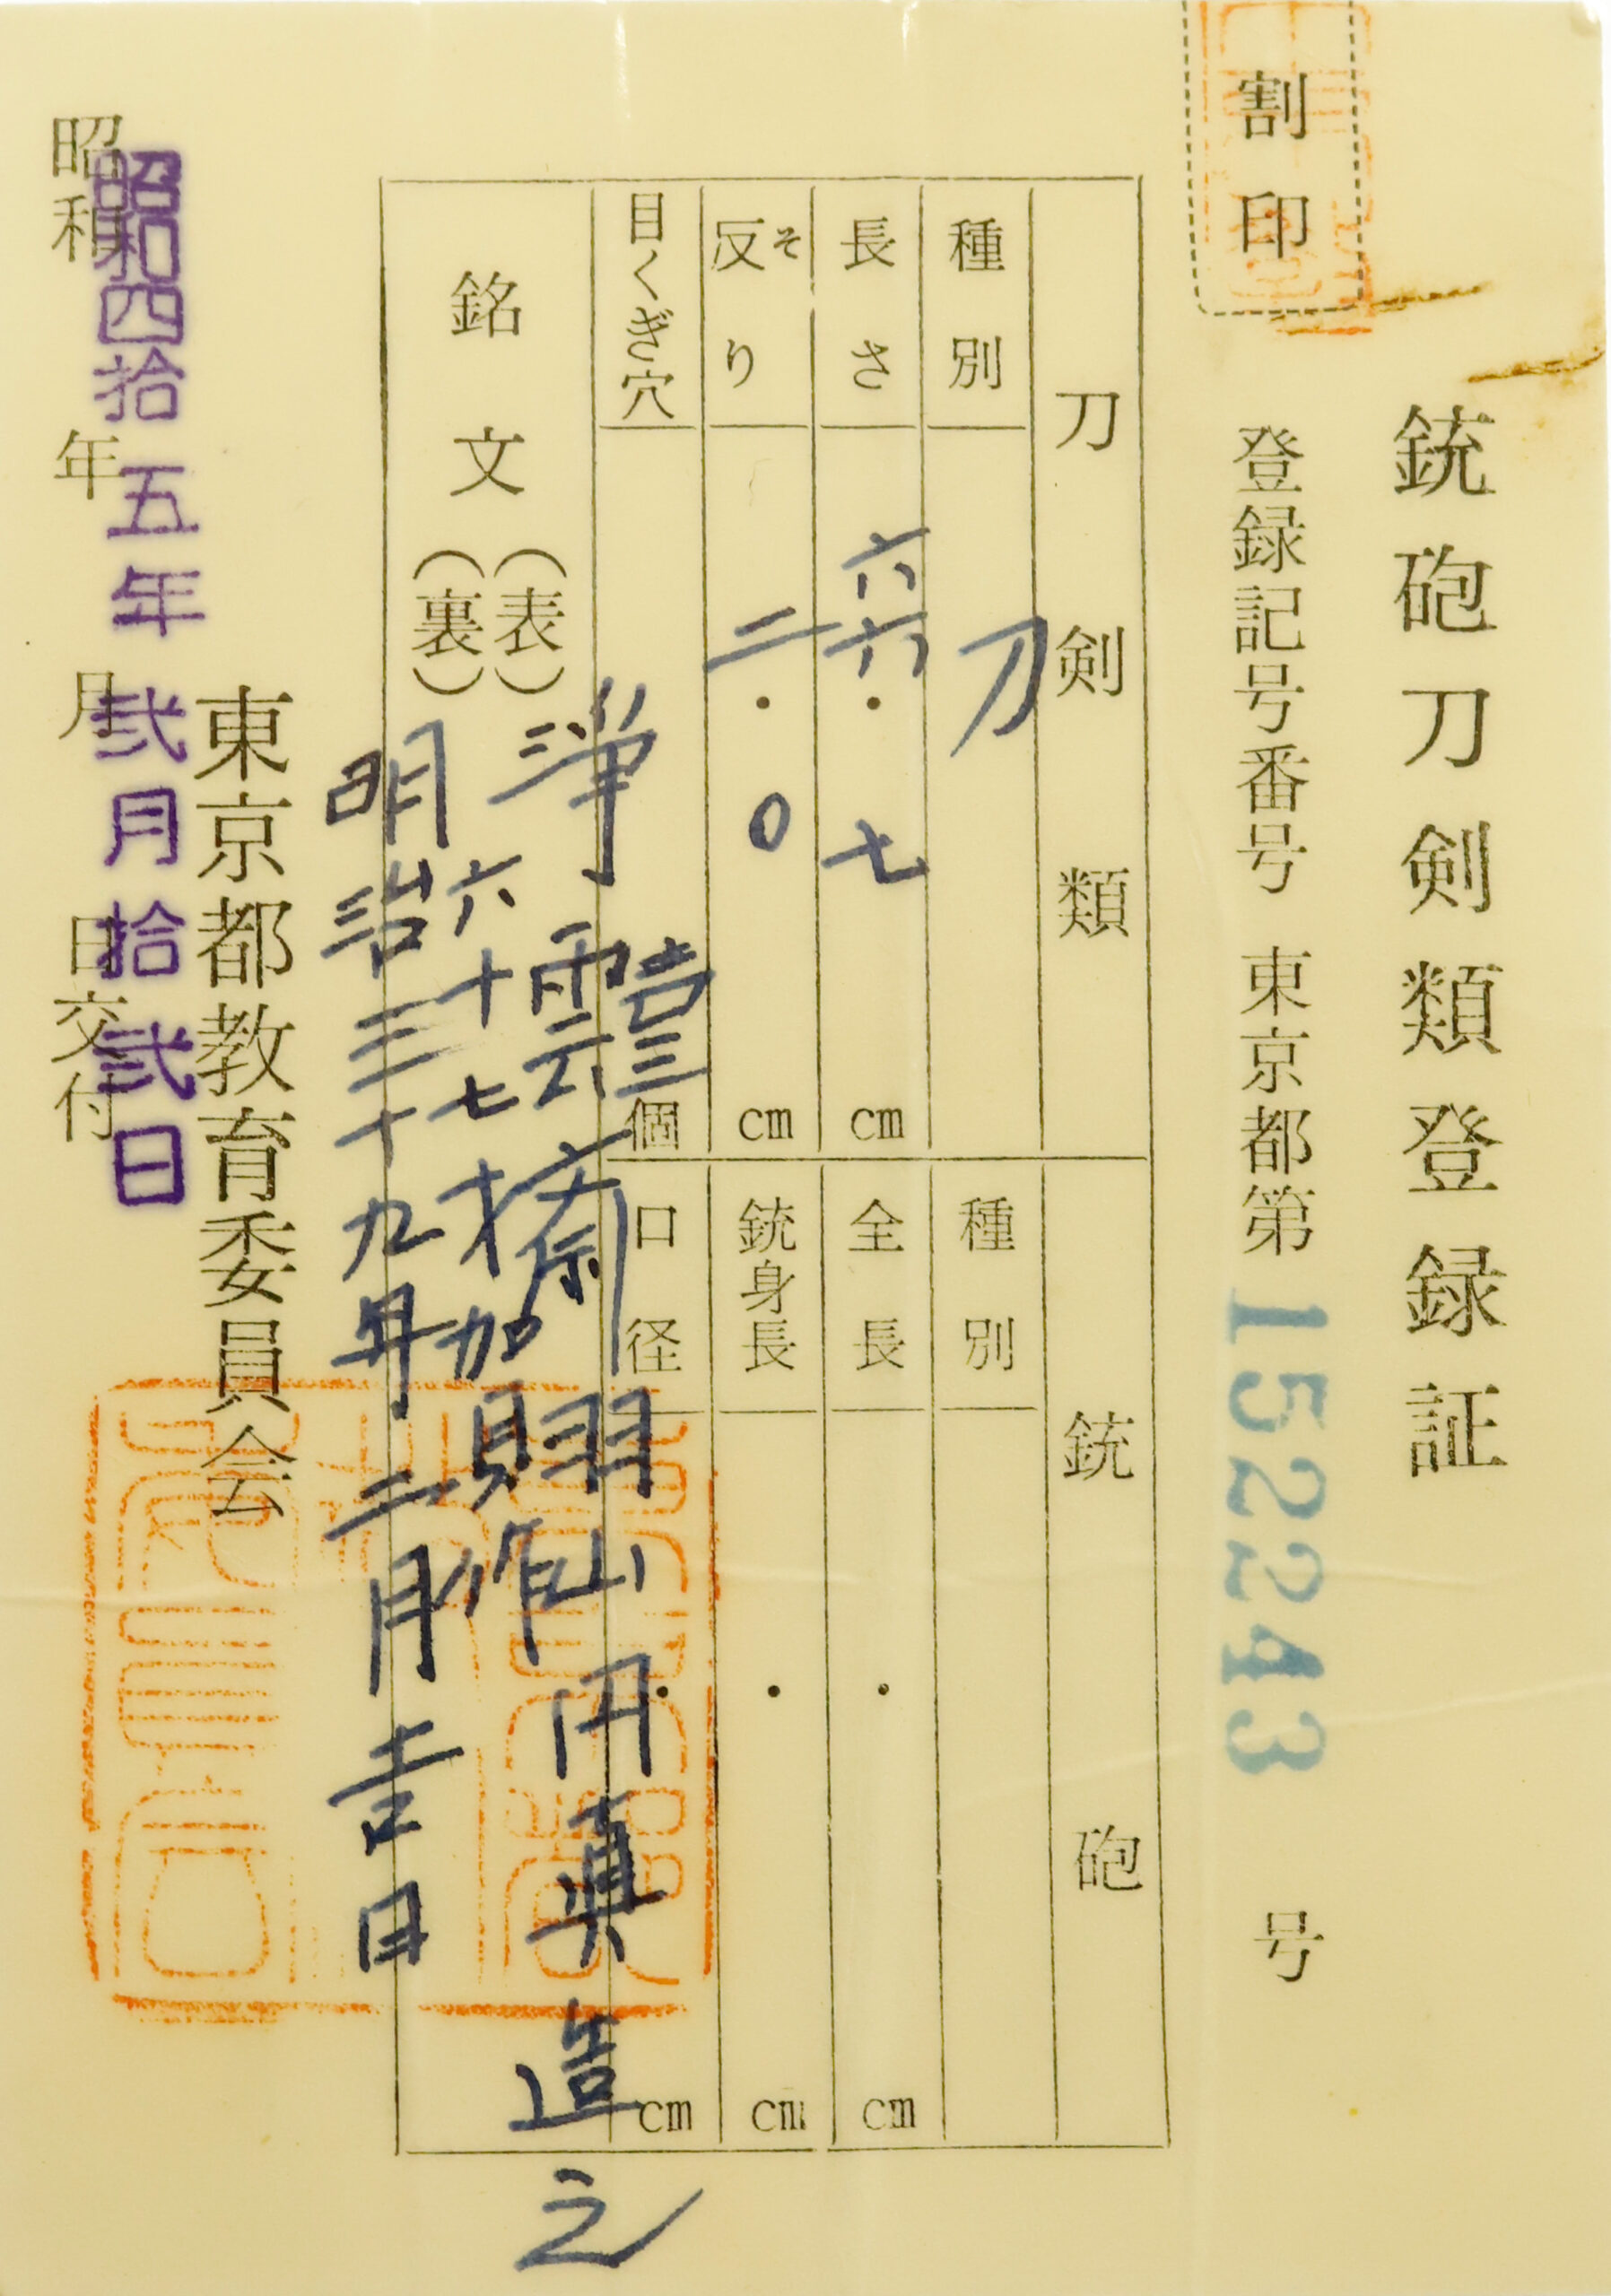 銃砲刀剣類登録証
割印
登録記号番号 東京都第 152243 号
刀剣類
種別 刀
長さ 六六・七 cm
反り そ 二・〇 cm
目くぎ穴 壱 個
銘文
(表) 浄雲斎羽山円真造之
六十七才加
作
(裏) 明治三十九年二月吉日
銃砲
種別
全長 ・ cm
銃身長 ・ cm
口径 ・ cm
東京都教育委員会
昭和四拾五年弐月拾弐日
昭和 年 月 日交付